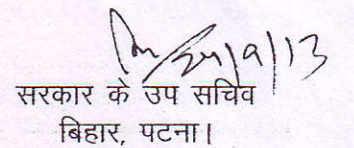 24/9/13
सरकार के उप सचिव
बिहार, पटना।